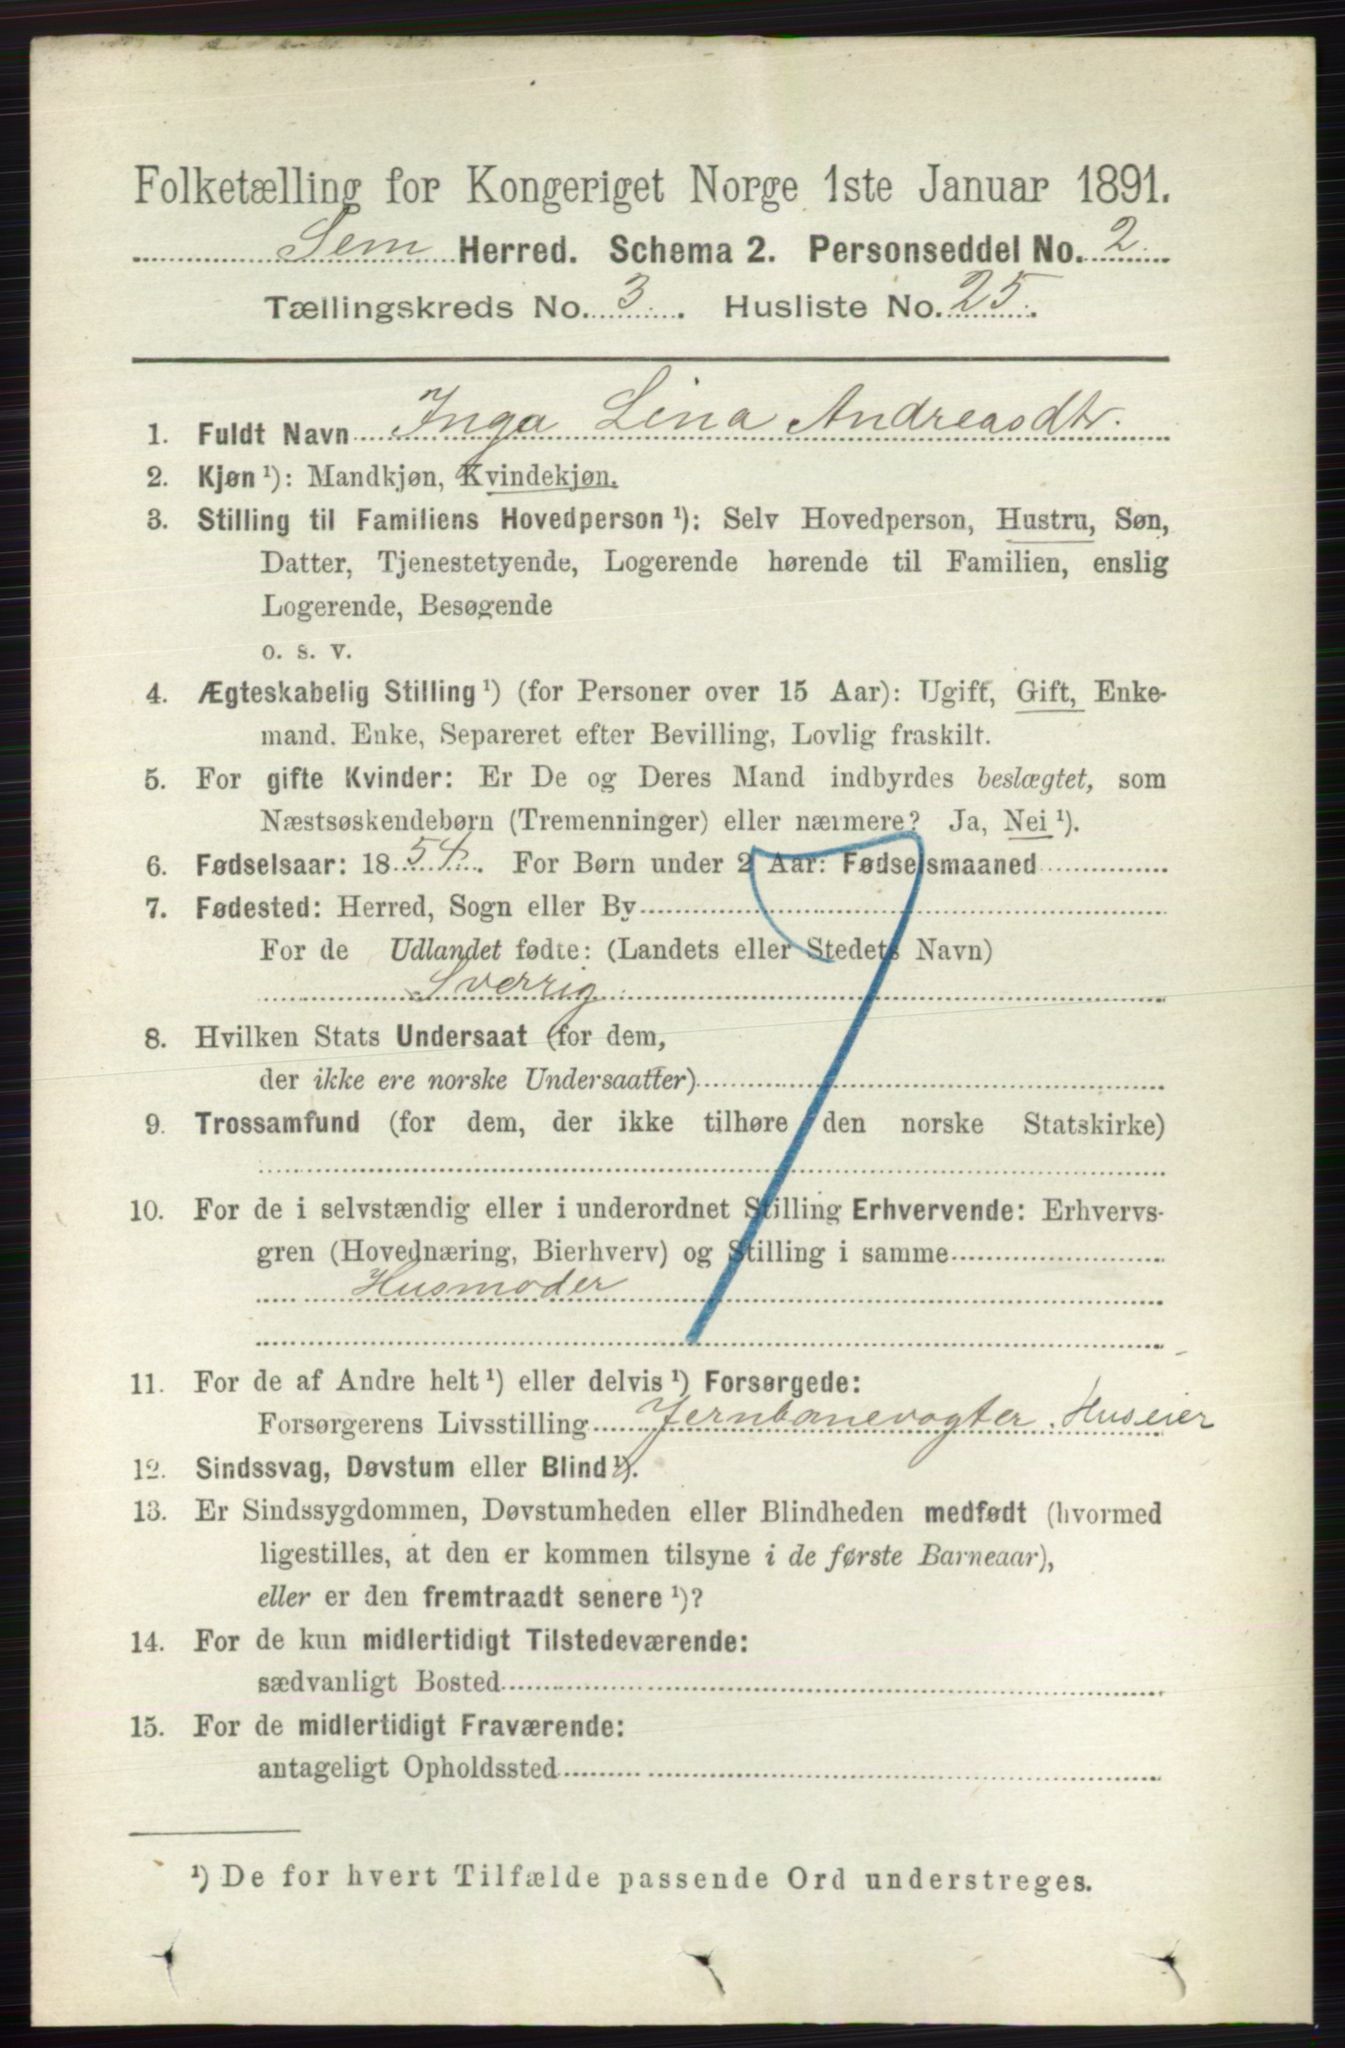 Folketælling for Kongeriget Norge 1ste Januar 1891.
Sem Herred. Schema 2. Personseddel No. 2
Tællingskreds No. 3. Husliste No. 25.
1. Fuldt Navn Inga Lina Andreasdtr.
2. Kjøn ¹): Mandkjøn, Kvindekjøn.
3. Stilling til Familiens Hovedperson ¹): Selv Hovedperson, Hustru, Søn,
Datter, Tjenestetyende, Logerende hørende til Familien, enslig
Logerende, Besøgende
o. s. v.
4. Ægteskabelig Stilling ¹) (for Personer over 15 Aar): Ugift, Gift, Enke-
mand. Enke, Separeret efter Bevilling, Lovlig fraskilt.
5. For gifte Kvinder: Er De og Deres Mand indbyrdes beslægtet, som
Næstsøskendebørn (Tremenninger) eller nærmere? Ja, Nei ¹).
6. Fødselsaar: 1854. For Børn under 2 Aar: Fødselsmaaned
7. Fødested: Herred, Sogn eller By
For de Udlandet fødte: (Landets eller Stedets Navn)
Sverrig
8. Hvilken Stats Undersaat (for dem,
der ikke ere norske Undersaatter)
9. Trossamfund (for dem, der ikke tilhøre den norske Statskirke)
10. For de i selvstændig eller i underordnet Stilling Erhvervende: Erhvervs-
gren (Hovednæring, Bierhverv) og Stilling i samme
Husmoder
11. For de af Andre helt ¹) eller delvis ¹) Forsørgede:
Forsørgerens Livsstilling Jernbanevogter. Huseier
12. Sindssvag, Døvstum eller Blind ¹).
13. Er Sindssygdommen, Døvstumheden eller Blindheden medfødt (hvormed
ligestilles, at den er kommen tilsyne i de første Barneaar),
eller er den fremtraadt senere ¹)?
14. For de kun midlertidigt Tilstedeværende:
sædvanligt Bosted
15. For de midlertidigt Fraværende:
antageligt Opholdssted
¹) De for hvert Tilfælde passende Ord understreges.